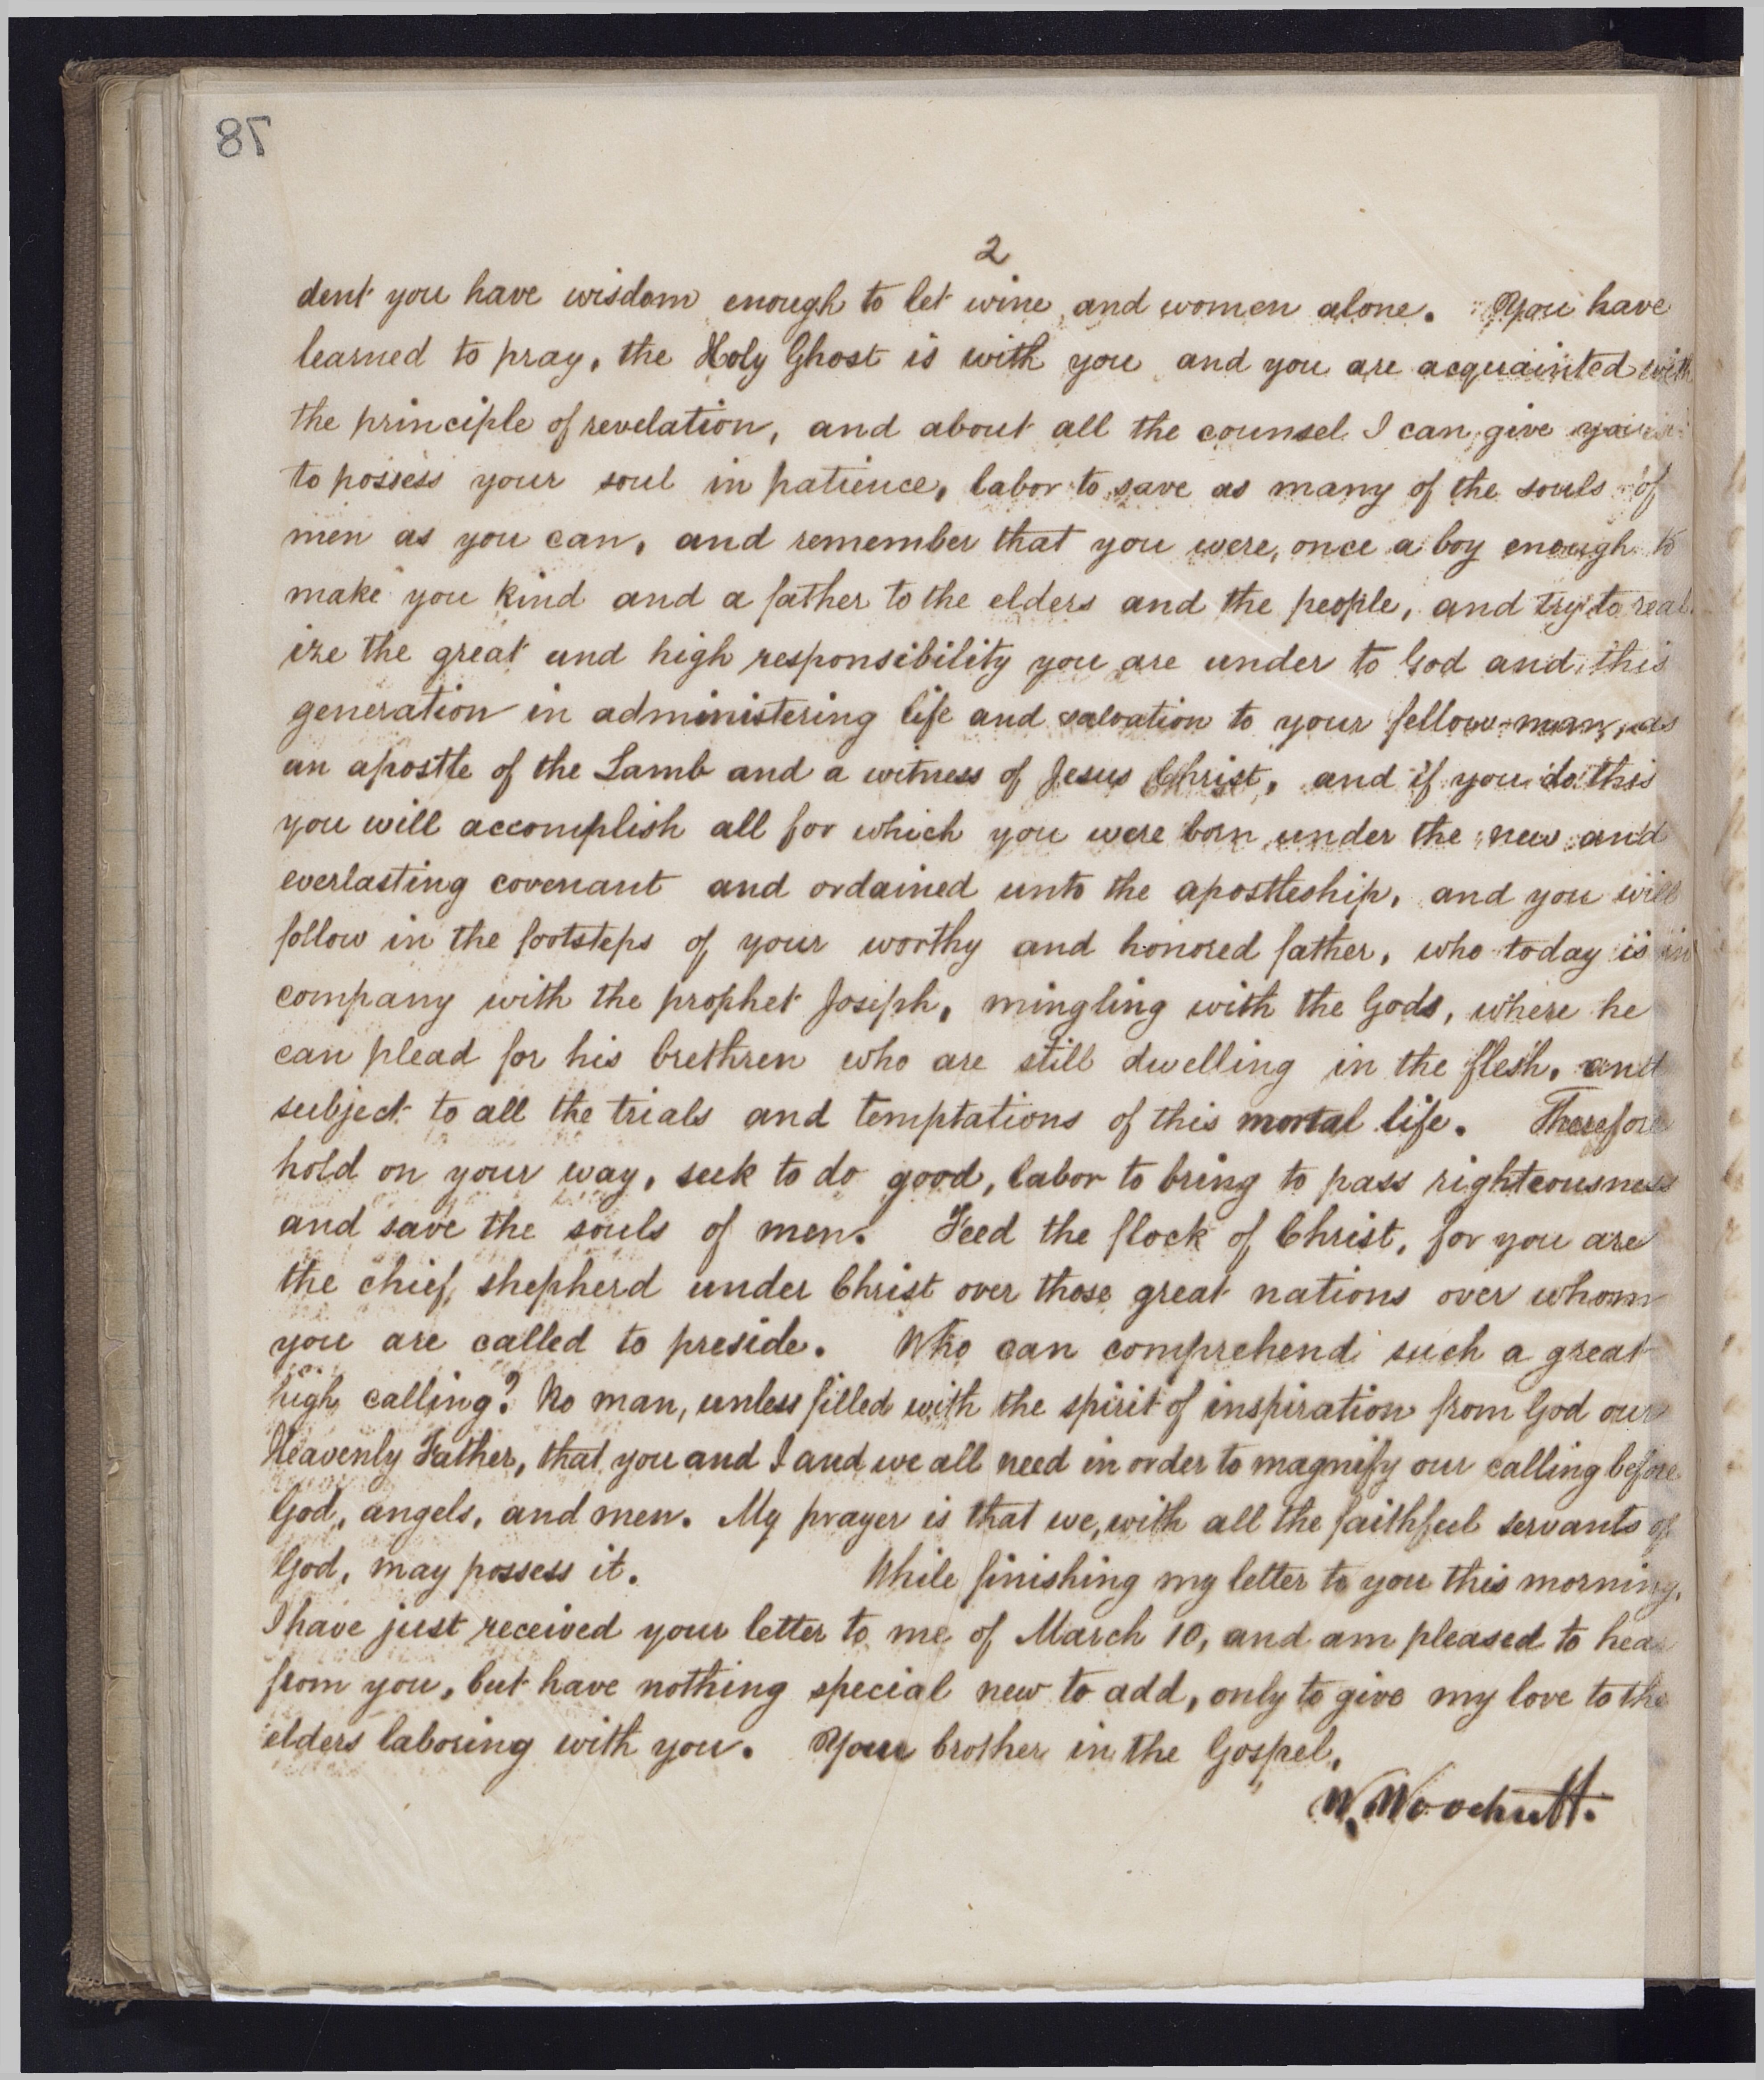 78
2
dent you have wisdom enough to let wine and women alone. You have
learned to pray, the Holy Ghost is with you and you are acquainted with
the principle of revelation, and about all the counsel I can give you is
to possess your soul in patience, labor to save as many of the souls of
men as you can, and remember that you were once a boy enough to
make you kind and a father to the elders and the people, and try to real
ize the great and high responsibility you are under to God and this
generation in administering life and salvation to your fellow-man, as
an apostle of the Lamb and a witness of Jesus Christ, and if you do this
you will accomplish all for which you were born under the new and
everlasting covenant and ordained unto the apostleship, and you will
follow in the footsteps of your worthy and honored father, who today is in
company with the prophet Joseph, mingling with the Gods, where he
can plead for his brethren who are still dwelling in the flesh, and
subject to all the trials and temptations of this mortal life. Therefore
hold on your way, seek to do good, labor to bring to pass righteousness
and save the souls of men. Feed the flock of Christ, for you are
the chief shepherd under Christ over those great nations over whom
you are called to preside. Who can comprehend such a great
high calling? No man, unless filled with the spirit of inspiration from God our
Heavenly Father, that you and I and we all need in order to magnify our calling before
God, angels, and men. My prayer is that we, with all the faithful servants of
God, may possess it. While finishing my letter to you this morning,
I have just received your letter to me of March 10, and am pleased to hear
from you, but have nothing special new to add, only to give my love to the
elders laboring with you. Your brother in the Gospel,
W. Woodruff.